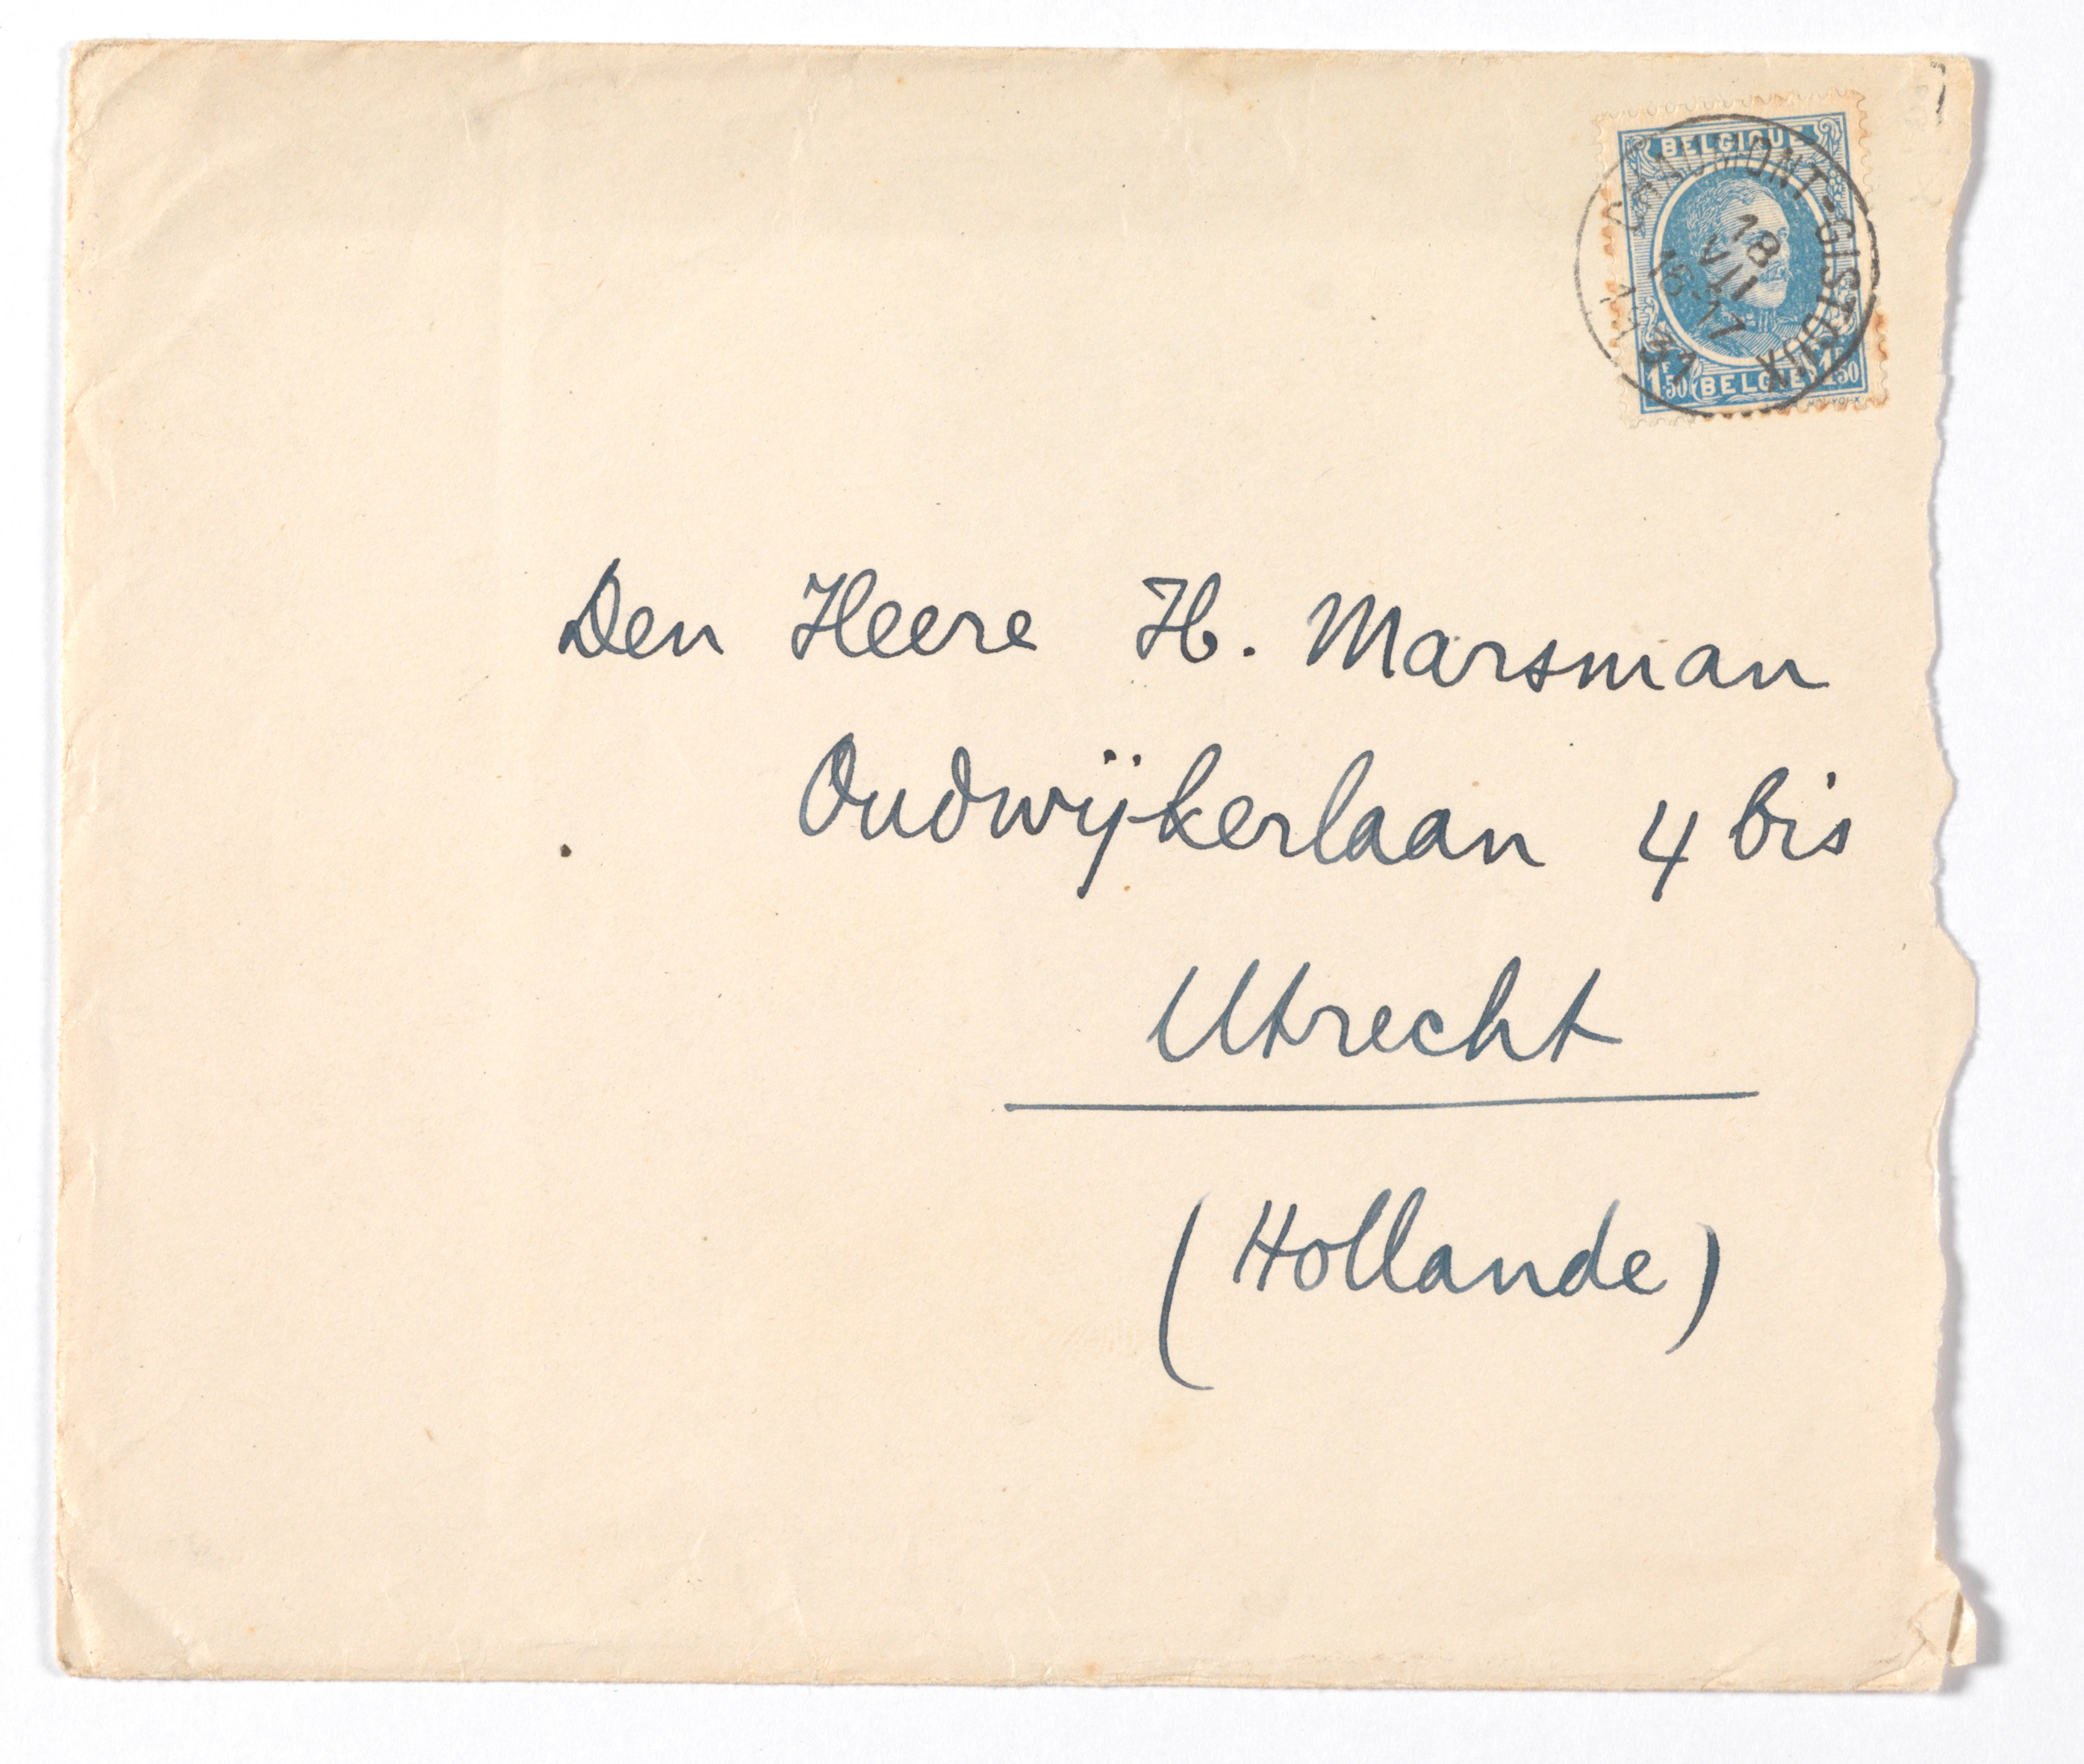 BELGIQUE
CHAUMONT-GISTOUX
18
VII
16-17
1F50 BELGIË 1F50
Den Heere H. Marsman
Oudwijkerlaan 4 bis
Utrecht
(Hollande)